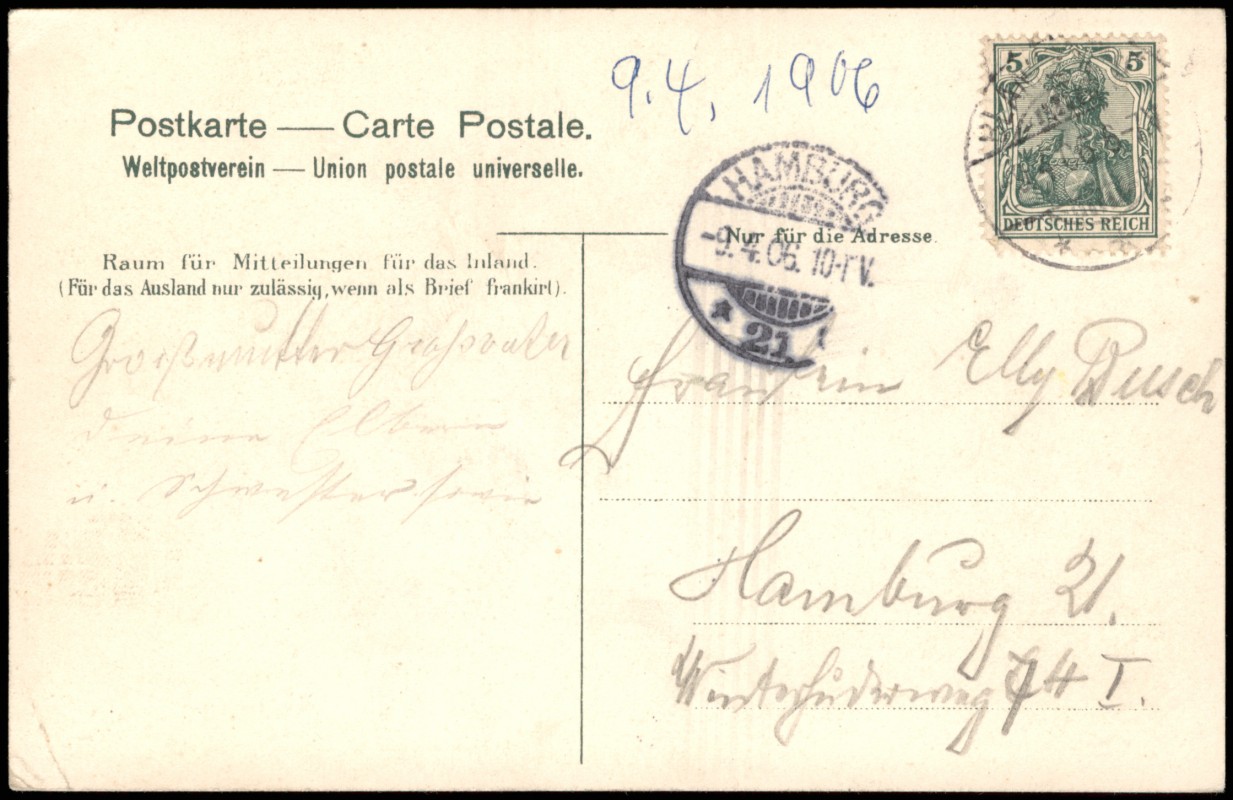 9.4. 1906
Postkarte — Carte Postale.
Weltpostverein — Union postale universelle.
5 5
DEUTSCHES REICH
HAMBURG
-9.4.06.10-11V.
* 21
Nur für die Adresse.
Raum für Mitteilungen für das Inland.
(Für das Ausland nur zulässig, wenn als Brief frankirt).
Großmutter Großvater
deine Eltern
u. Schwester sowie
Fräulein Elly Busch
Hamburg 21.
Winterhuderweg 74 I.